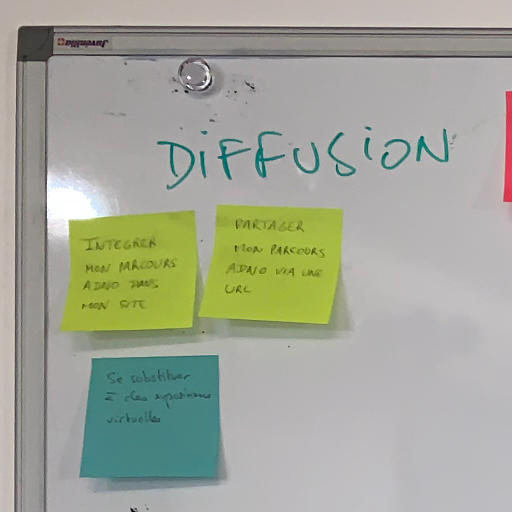 DIFFUSION
INTEGRER
MON PARCOURS
ADNO DANS
MON SITE
PARTAGER
MON PARCOURS
ADNO VIA UNE
URL
Se substituer
à des expositions
virtuelles